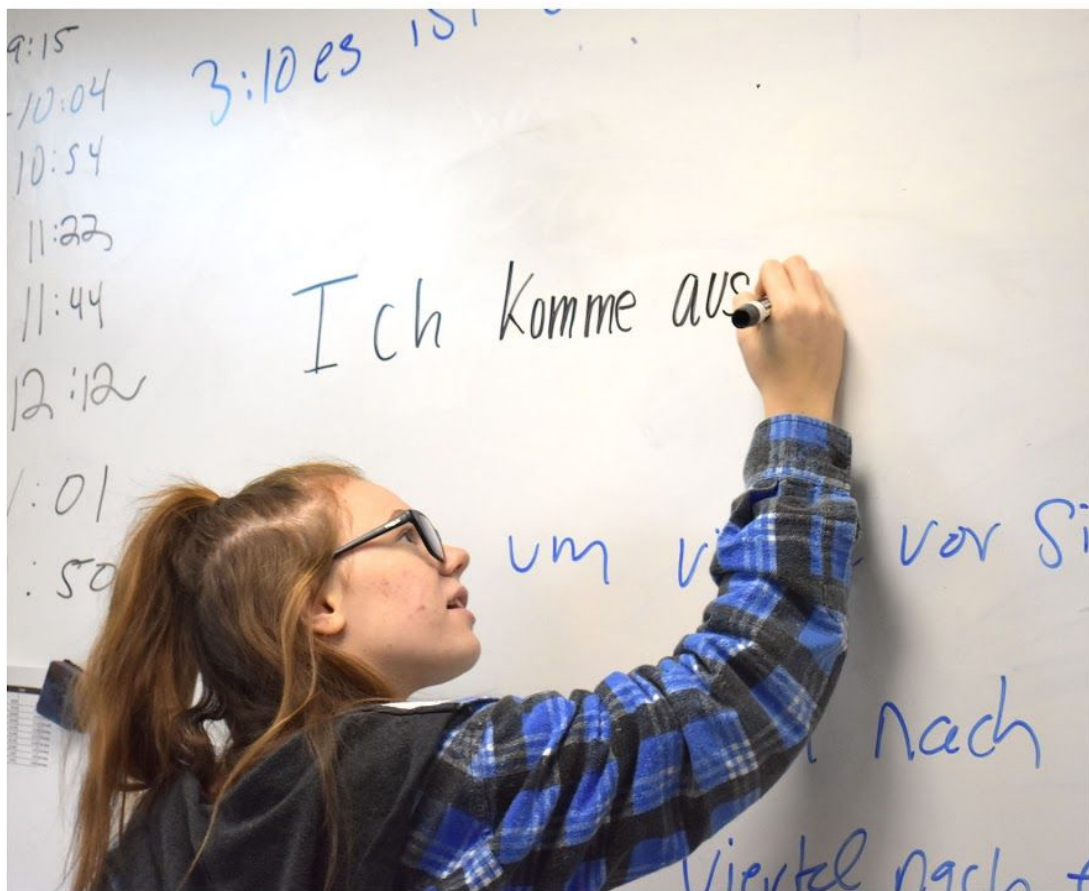 9:15
10:04
10:54
11:22
11:44
12:12
:01
:50
3:10 es ist
Ich komme aus
um vor
nach
Viertel nach